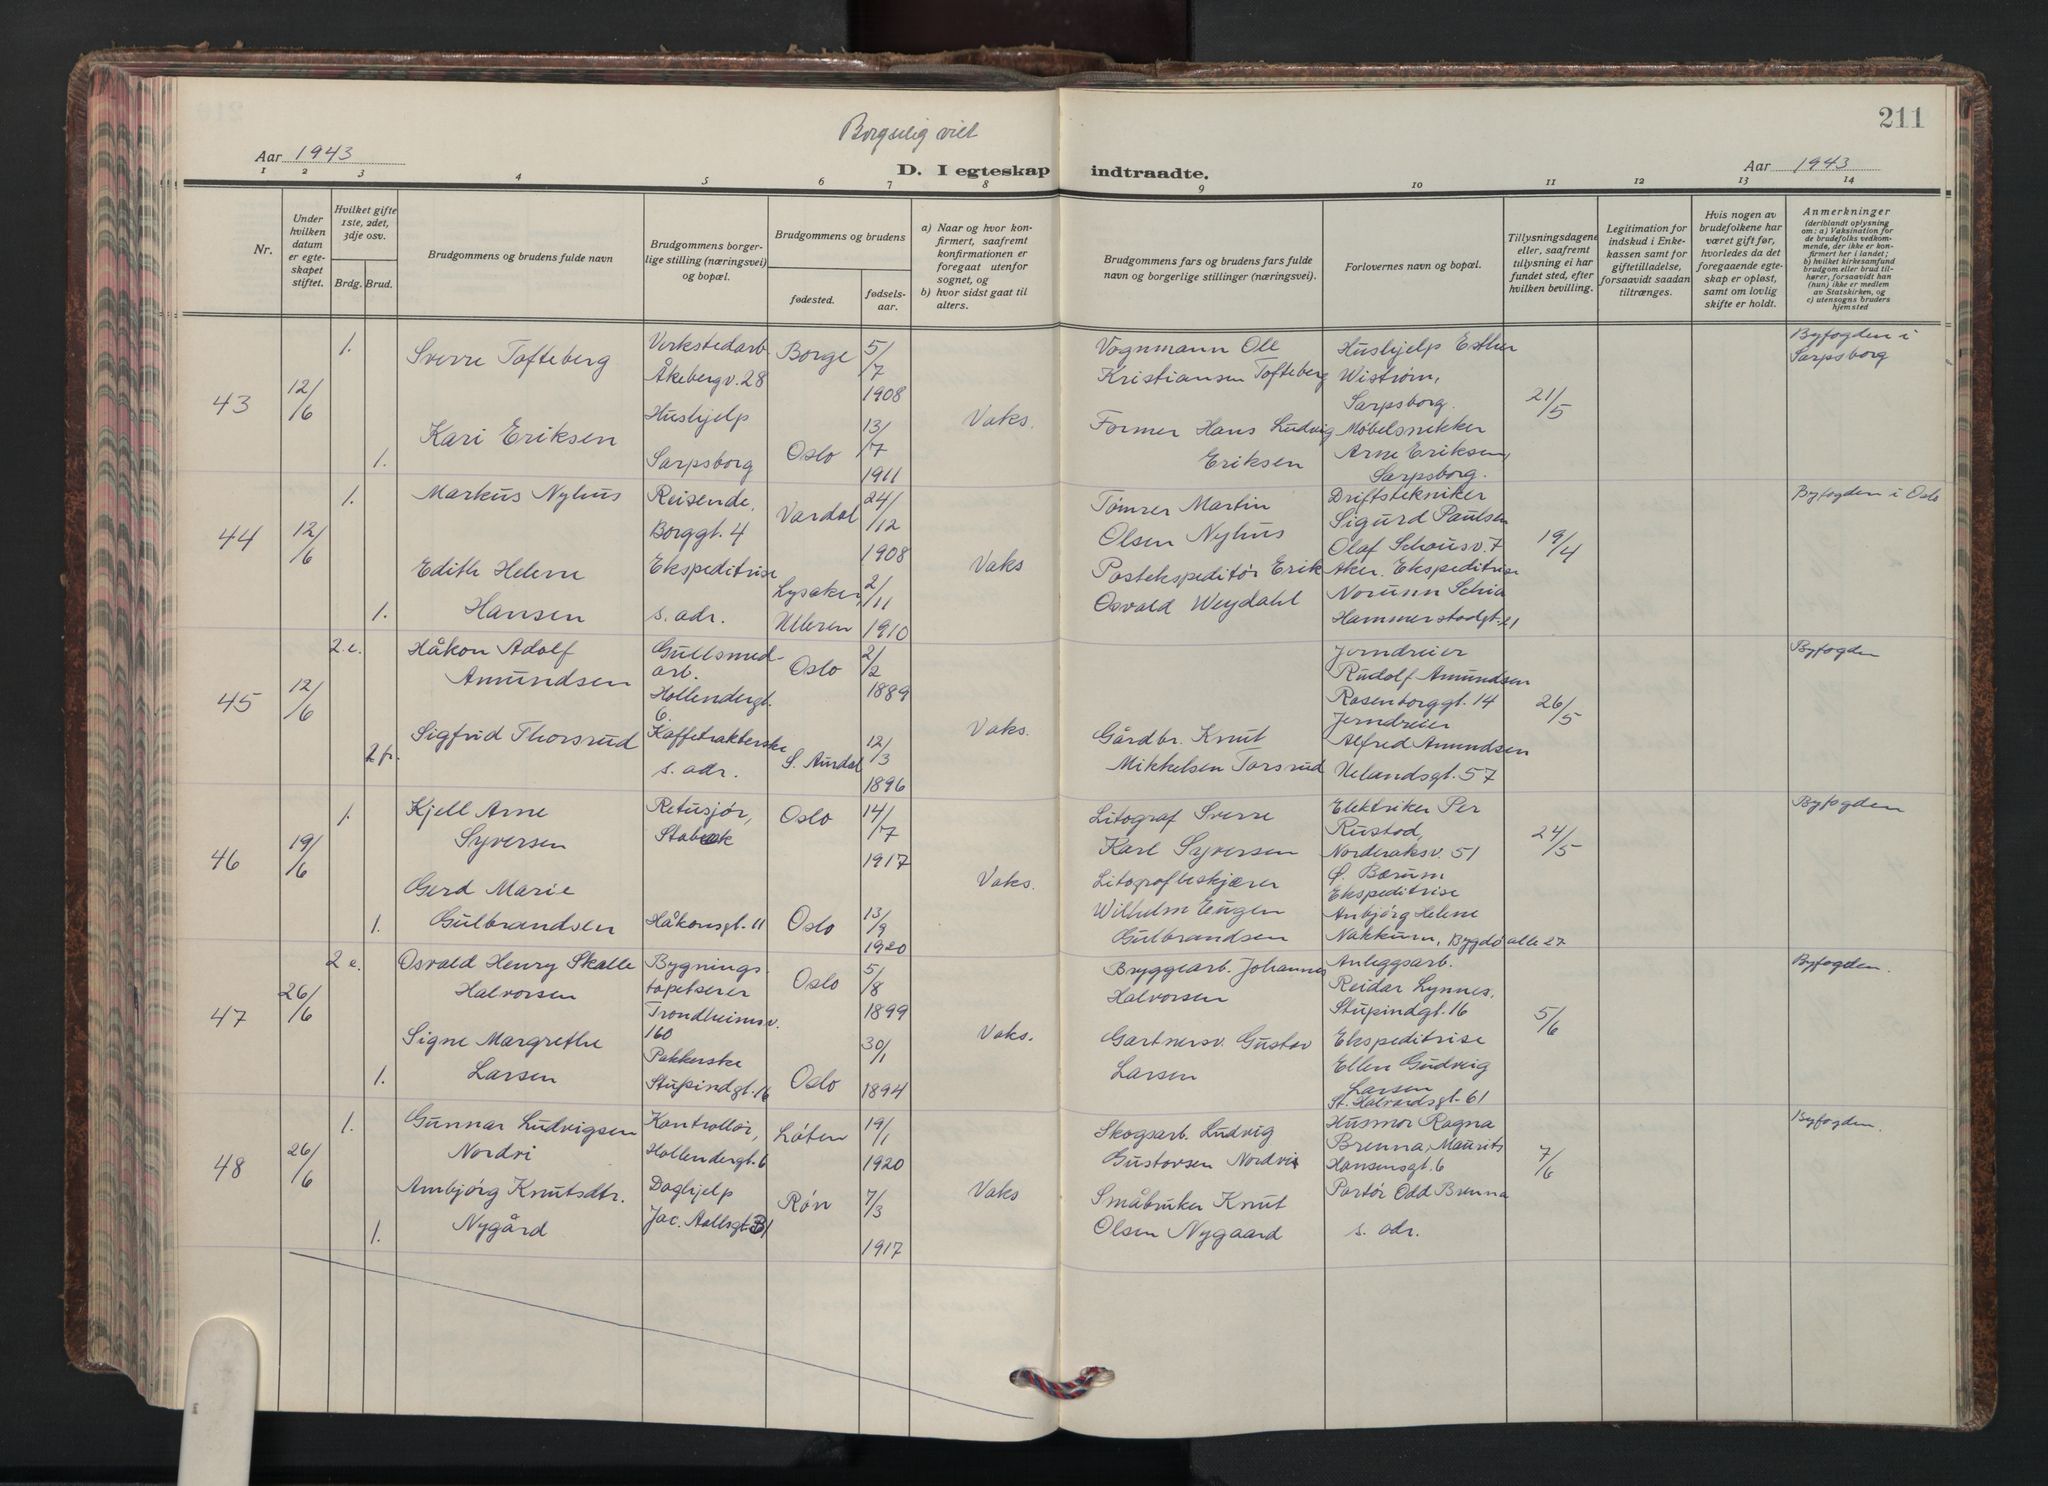 211
Borgerlig viet
Aar 1943
D. I egteskap indtraadte.
Aar 1943
1 2 3 4 5 6 7 8 9 10 11 12 13 14
Nr.
Under hvilken datum er egteskapet stiftet.
Hvilket gifte 1ste, 2det, 3dje osv.
Brdg. Brud.
Brudgommens og brudens fulde navn
Brudgommens borgerlige stilling (næringsvei) og bopæl.
Brudgommens og brudens
fødested.
fødselsaar.
a) Naar og hvor konfirmert, saafremt konfirmationen er foregaat utenfor sognet, og
b) hvor sidst gaat til alters.
Brudgommens fars og brudens fars fulde navn og borgerlige stillinger (næringsvei).
Forlovernes navn og bopæl.
Tillysningsdagene eller, saafremt tillysning ei har fundet sted, efter hvilken bevilling.
Legitimation for indskud i Enkekassen samt for giftetilladelse, forsaavidt saadan tiltrænges.
Hvis nogen av brudefolkene har været gift før, hvorledes da det foregaaende egteskap er opløst, samt om lovlig skifte er holdt.
Anmerkninger
(deriblandt oplysning om: a) Vaksination for de brudefolks vedkommende, der ikke er konfirmert her i landet; b) hvilket kirkesamfund brudgom eller brud tilhører, forsaavidt han (hun) ikke er medlem av Statskirken, og c) utensogns bruders hjemsted
43 12/6 1. Sverre Tofteberg
Verkstedarb.
Åkebergv. 28
Borge 5/7 1908
Vognmann Ole
Kristiansen Tofteberg
Hushjelp Esther
Wistrøm,
Sarpsborg.
21/5
Byfogden i
Sarpsborg
1. Kari Eriksen
Hushjelp
Sarpsborg
Oslo 13/7 1911
Vaks.
Former Hans Ludvig
Eriksen
Møbelsnekker
Arne Eriksen,
Sarpsborg.
44 12/6 1. Markus Nyhus
Reisende,
Borggt. 4
Vardal 24/12 1908
Tømrer Martin
Olsen Nyhus
Driftstekniker
Sigurd Paulsen
Olaf Schousv. 7
19/4
Byfogden i Oslo
1. Edith Helene
Hansen
Ekspeditrise
s. adr.
Lysaker,
Ullern 2/11 1910
Vaks
Postekspeditør Erik
Osvald Weydahl
Aker. Ekspeditrise
Norunn Schia
Hammerstadgt. 21
45 12/6 2 e. Håkon Adolf
Amundsen
Gullsmedarb.
Hollendergt.
6.
Oslo 2/2 1889
Jerndreier
Rudolf Amundsen
Rosenborggt. 14
26/5
Byfogden
2 fr. Sigfrid Thorsrud
Kaffetrakterske
s. adr.
S. Aurdal 12/3 1896
Vaks.
Gårdbr. Knut
Mikkelsen Torsrud
Jerndreier
Alfred Amundsen
Uelandsgt. 57
46 19/6 1. Kjell Arne
Syversen
Retusjør,
Stabekk
Oslo 14/7 1917
Litograf Sverre
Karl Syversen
Elektriker Per
Rustad,
Norderaksv. 51
Ø. Bærum
24/5
Byfogden
1. Gerd Marie
Gulbrandsen
Håkonsgt. 11
Oslo 13/9 1920
Vaks.
Litografbeskjærer
Wilhelm Eugen
Gulbrandsen
Ekspeditrise
Anbjørg Helene
Nakkum, Bygdø alle 27
47 26/6 2 e. Osvald Henry Skalle
Halvorsen
Bygningstapetserer
Trondheimsv.
160
Oslo 5/8 1899
Bryggearb. Johannes
Halvorsen
Anleggsarb.
Reidar Lynnes,
Stupindgt. 16
5/6
Byfogden.
1. Signe Margrethe
Larsen
Pakkerske
Stupindgt. 16
Oslo 30/1 1894
Vaks.
Gartnersv. Gustav
Larsen
Ekspeditrise
Ellen Gudvig
Larsen
St. Halvardsgt. 61
48 26/6 1. Gunnar Ludvigsen
Nordvi
Kontrollør,
Hollendergt. 6
Løten 19/1 1920
Skogsarb. Ludvig
Gustavsen Nordvi
Husmor Ragna
Brenna, Maurits
Hansensgt. 6
7/6
Byfogden.
1. Ambjörg Knutsdtr.
Nygård
Daghjelp
Jac. Aallsgt.
Røn 7/3 1917
Vaks
Småbruker Knut
Olsen Nygaard
Portør Odd Brenna
s. adr.